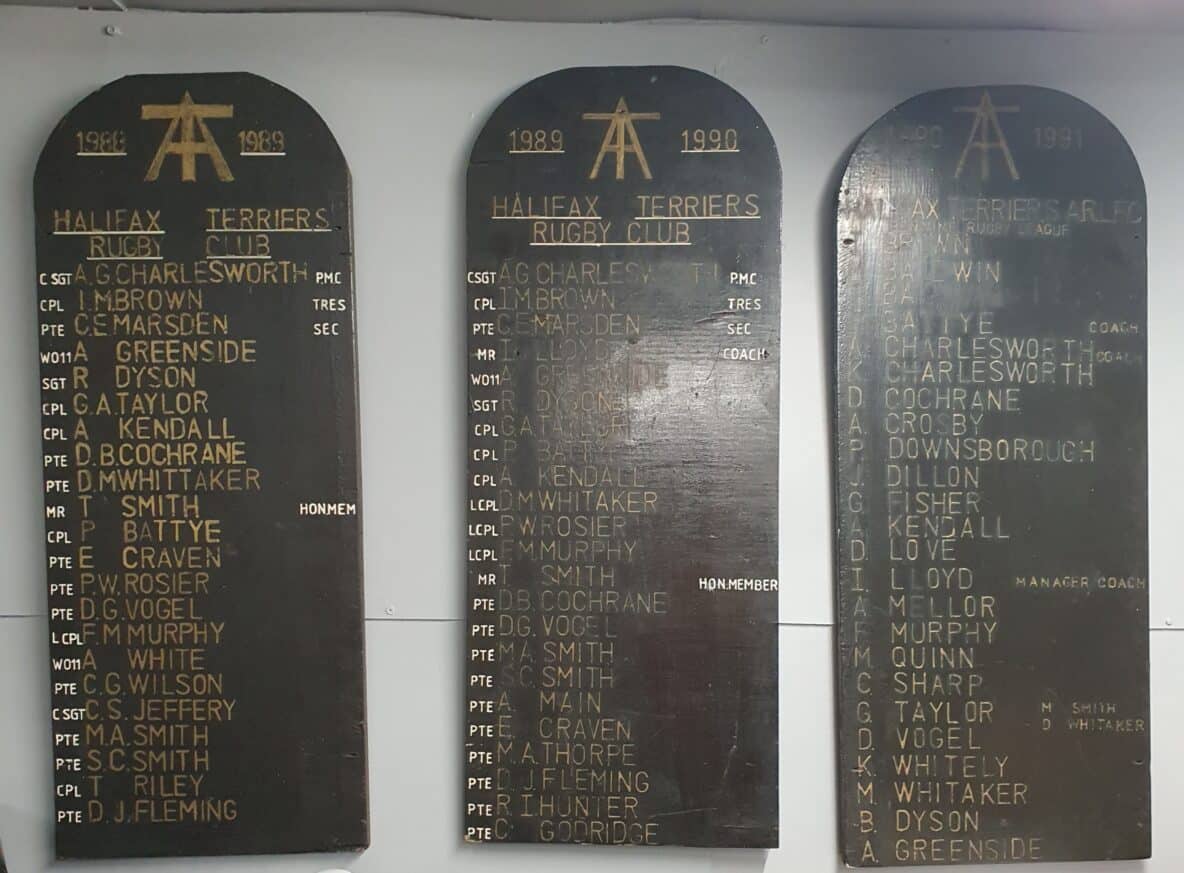 1988 TA 1989
HALIFAX TERRIERS
RUGBY CLUB
C SGT A.G.CHARLESWORTH P.M.C
CPL I.M.BROWN TRES
PTE C.E.MARSDEN SEC
WO11 A GREENSIDE
SGT R DYSON
CPL G.A.TAYLOR
CPL A KENDALL
PTE D.B.COCHRANE
PTE D.M.WHITTAKER
MR T SMITH HON.MEM
CPL P BATTYE
PTE E CRAVEN
PTE P.W.ROSIER
PTE D.G.VOGEL
L CPL F.M.MURPHY
WO11 A WHITE
PTE C.G.WILSON
C SGT C.S.JEFFERY
PTE M.A.SMITH
PTE S.C.SMITH
CPL T RILEY
PTE D.J.FLEMING
1989 TA 1990
HALIFAX TERRIERS
RUGBY CLUB
CSGT A.G.CHARLESWORTH P.M.C
CPL I.M.BROWN TRES
PTE C.E.MARSDEN SEC
MR I LLOYD COACH
WO11 A GREENSIDE
SGT R DYSON
CPL G.A.TAYLOR
CPL P BATTYE
CPL A KENDALL
LCPL D.M.WHITAKER
LCPL P.W.ROSIER
LCPL F.M.MURPHY
MR T SMITH HON.MEMBER
PTE D.B.COCHRANE
PTE D.G.VOGEL
PTE M.A.SMITH
PTE S.C.SMITH
PTE A. MAIN
PTE E. CRAVEN
PTE M.A.THORPE
PTE D.J.FLEMING
PTE R.I.HUNTER
PTE C. GODRIDGE
1990 TA 1991
HALIFAX TERRIERS ARLFC
RUGBY LEAGUE
BROWN
BALDWIN
BATTYE COACH
A. CHARLESWORTH COACH
K. CHARLESWORTH
D. COCHRANE
A. CROSBY
P. DOWNSBOROUGH
J. DILLON
G. FISHER
A. KENDALL
D. LOVE
I. LLOYD MANAGER COACH
A. MELLOR
F. MURPHY
M. QUINN
C. SHARP
G. TAYLOR M SMITH
D. VOGEL D WHITAKER
K. WHITELY
M. WHITAKER
B. DYSON
A. GREENSIDE